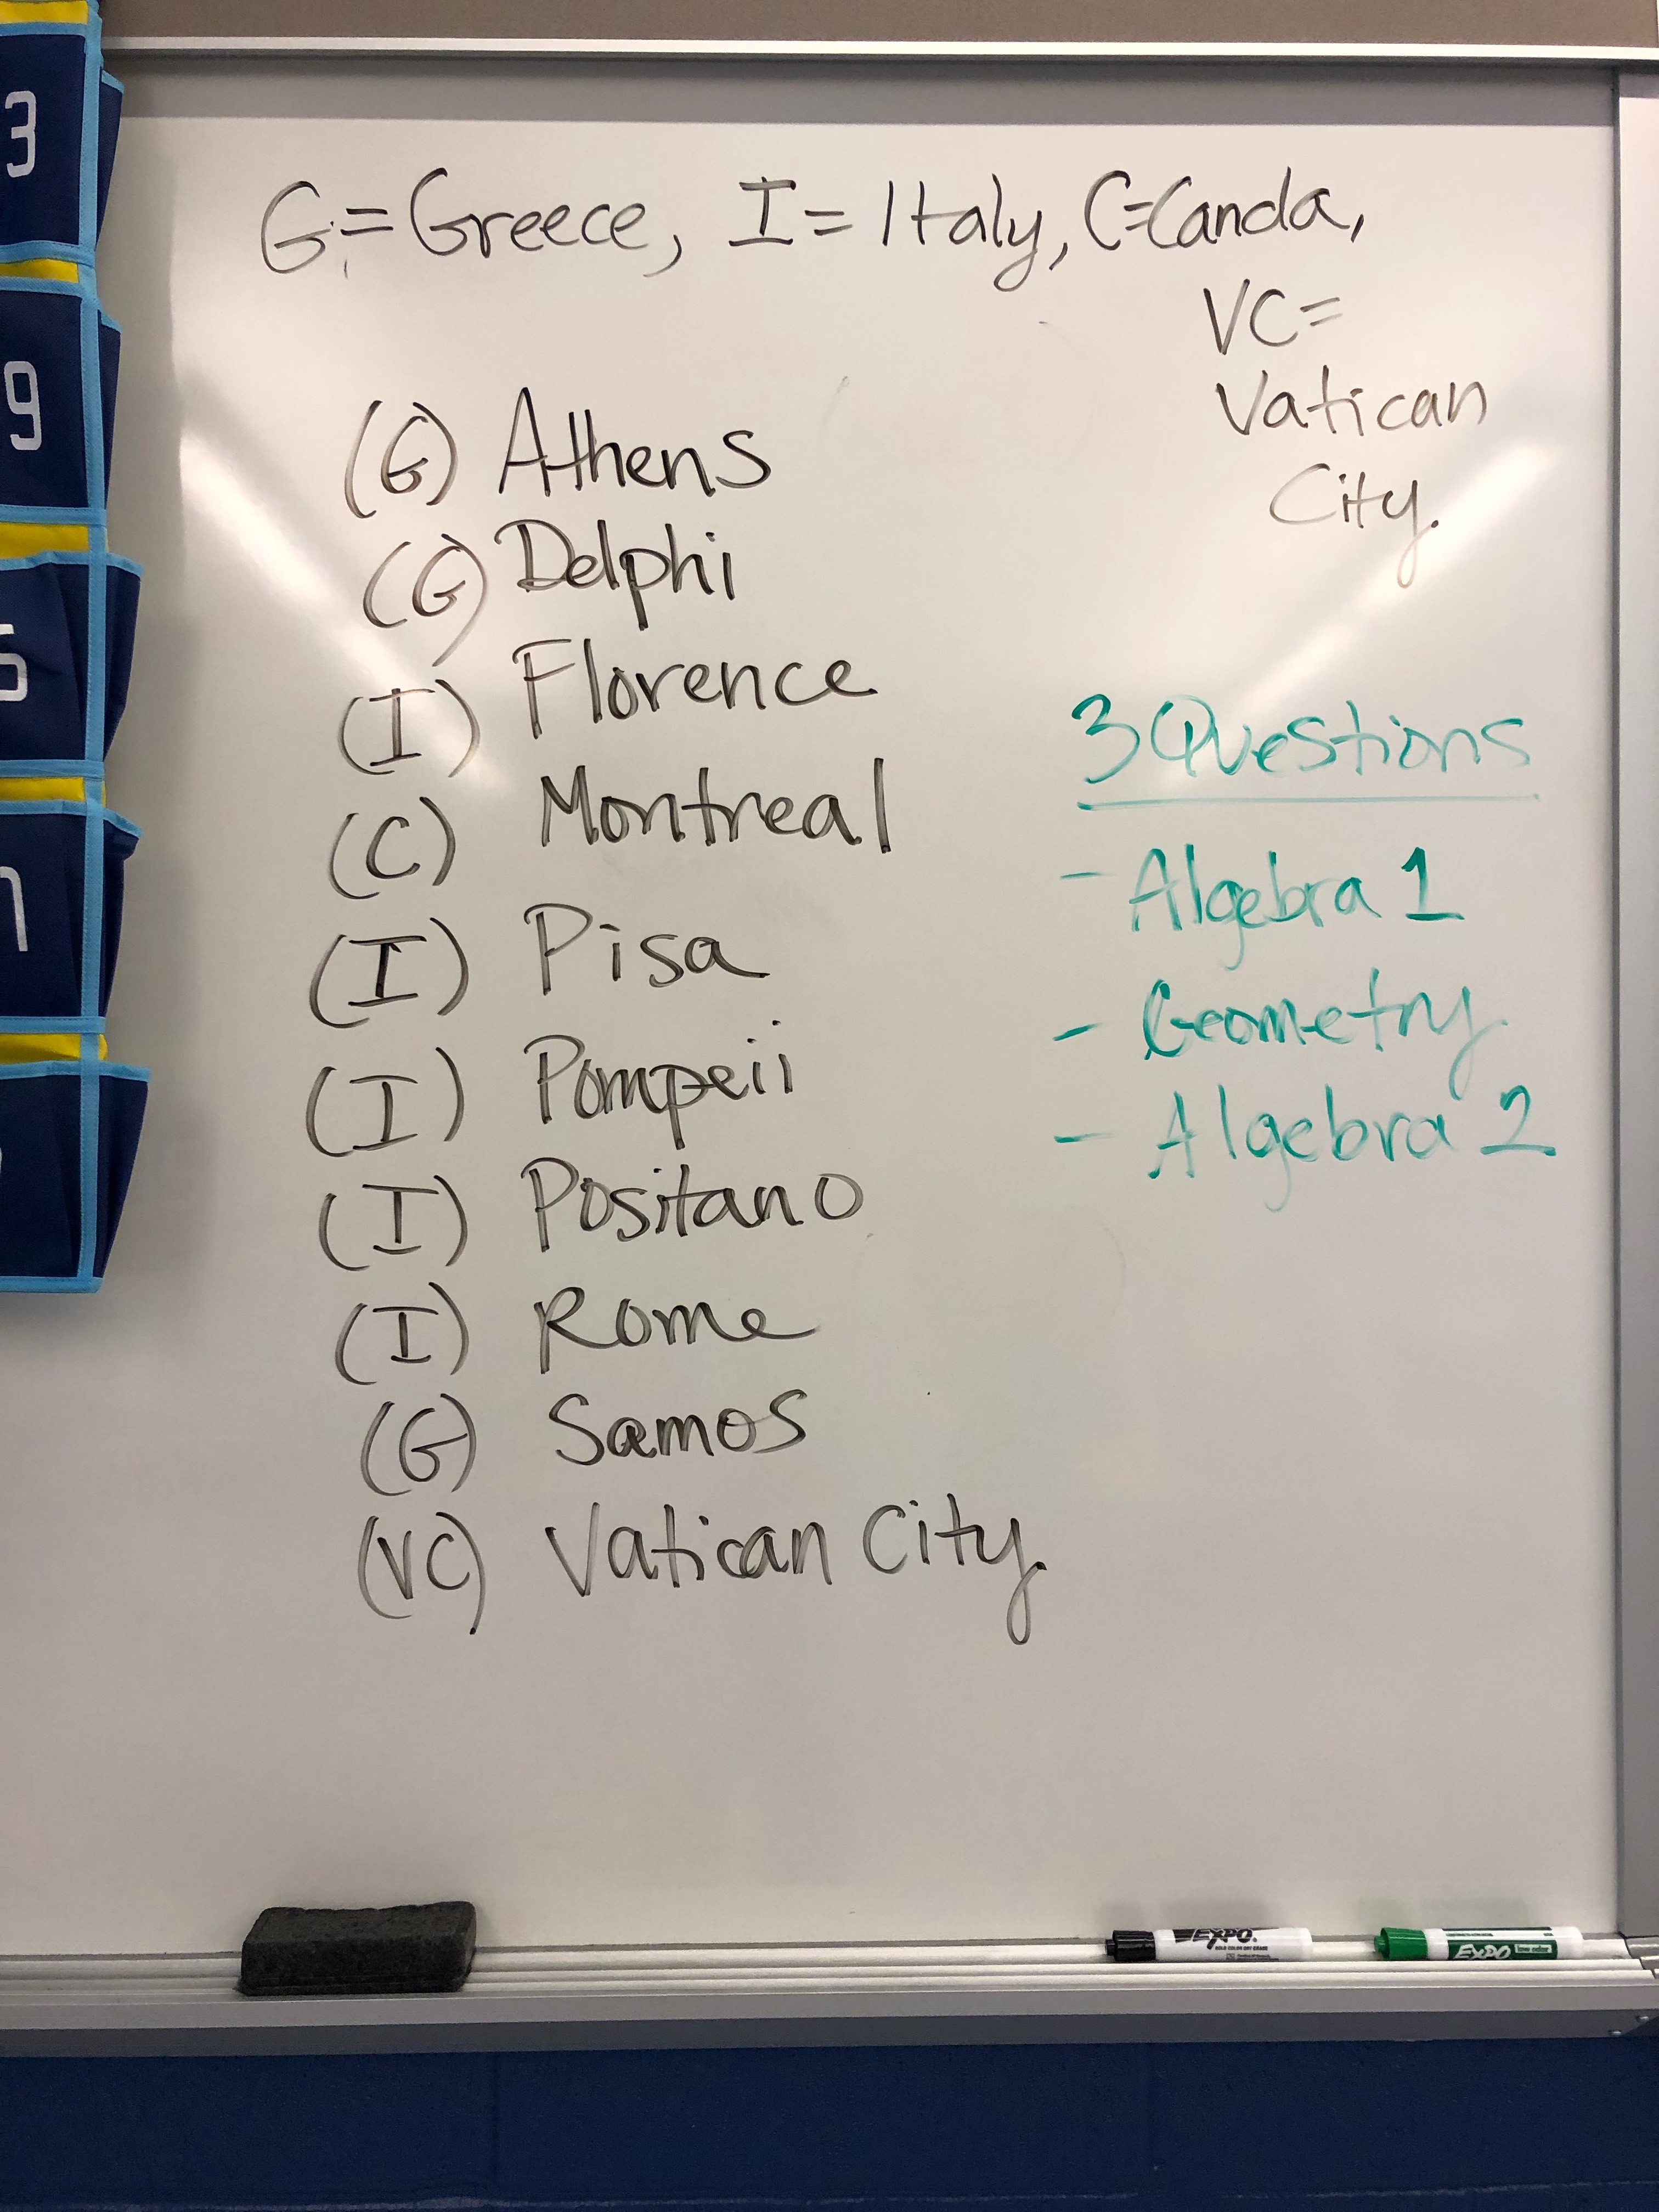 G=Greece, I=Italy, C=Canda,
VC=
Vatican
City.
(G) Athens
(G) Delphi
(I) Florence
(C) Montreal
(I) Pisa
(I) Pompeii
(I) Positano
(I) Rome
(G) Samos
(VC) Vatican City.
3 Questions
- Algebra 1
- Geometry
- Algebra 2
3
9
5
EXPO
EXPO
low odor